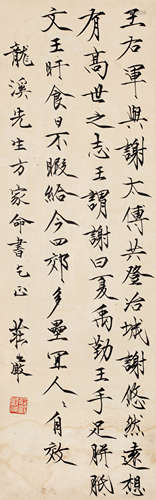 王右軍與謝太傅共登冶城謝悠然遠想
有高世之志王謂謝曰夏禹勤王手足胼胝
文王旰食日不暇給今四郊多壘宜人人自效
龍溪先生方家命書乞正 莊嚴